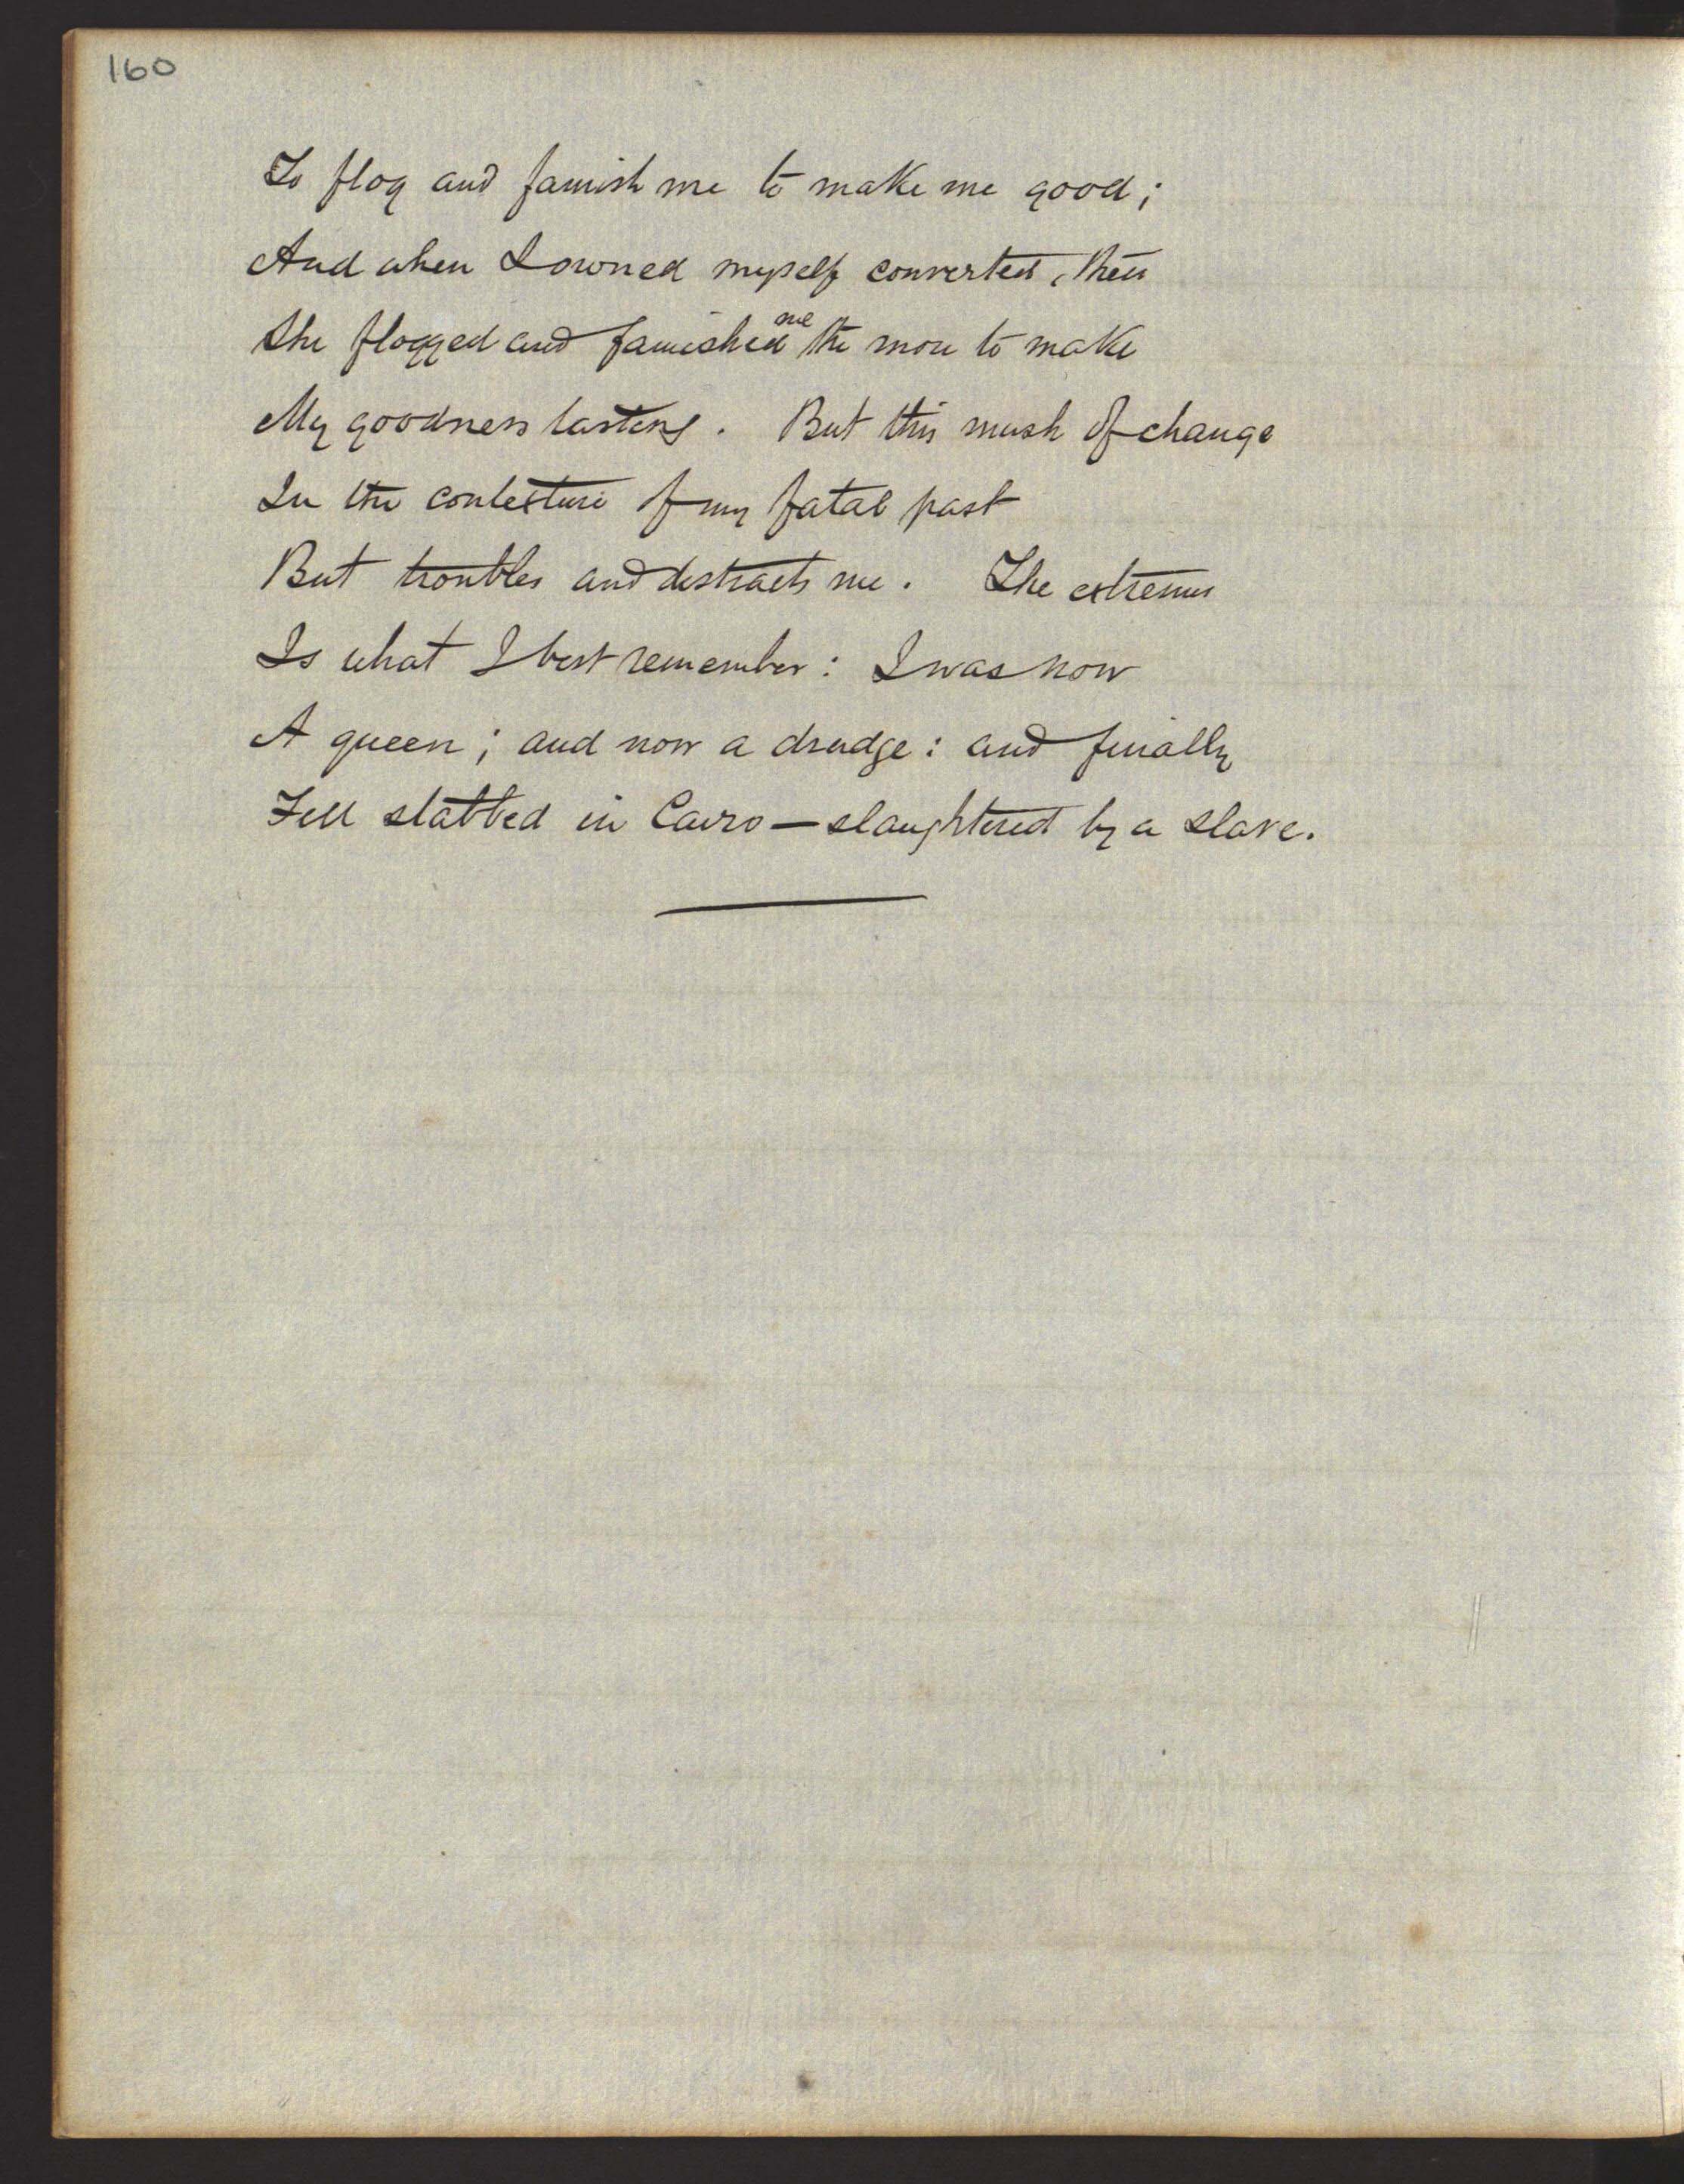 160
To flog and famish me to make me good;
And when I owned myself converted, then
She flogged and famished me the more to make
My goodness lasting. But this mush of change
In the contexture of my fatal past
But troubles and distracts me. The extremes
Is what I best remember: I was now
A queen; and now a drudge: and finally
Fell stabbed in Cairo—slaughtered by a slave.